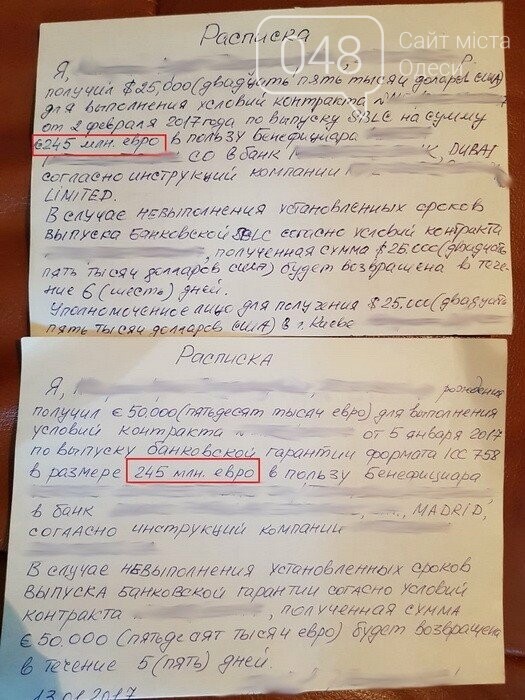 048 Сайт міста Одеси
Расписка
Я,
получил $25,000 (двадцать пять тысяч доларов сша)
для выполнения условий контракта №
от 2 февраля 2017 года по выпуску SBLC на сумму
€245 млн. евро в пользу Бенефициара
со в банк DUBAI
согласно инструкций компании
LIMITED.
В случае невыполнения установленных сроков
выпуска Банковской SBLC согасно условий контракта
, полученная сумма $25.000 (двадцать
пять тысяч долларов сша) будет возвращена в тече-
ние 6 (шесть) дней.
Уполномоченное лицо для получения $25.000 (двадцать
пять тысяч долларов сша) в г. Киеве
Расписка
Я, рождения
получил €50.000 (пятьдесят тысяч евро) для выполнения
условий контракта от 5 января 2017
по выпуску банковской гарантии формата ICC 758
в размере 245 млн. евро в пользу Бенефициара
в банк , MADRID,
согласно инструкций компании
В случае невыполнения установленных сроков
выпуска банковской гарантии согасно условий
контракта , полученная сумма
€50.000 (пятьдесят тысяч евро) будет возвращена
в течение 5 (пять) дней.
13.01.2017